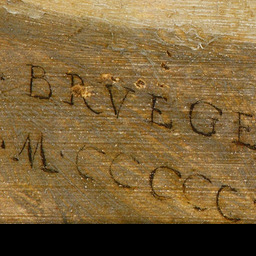 BRVEGE
M·CCCCC